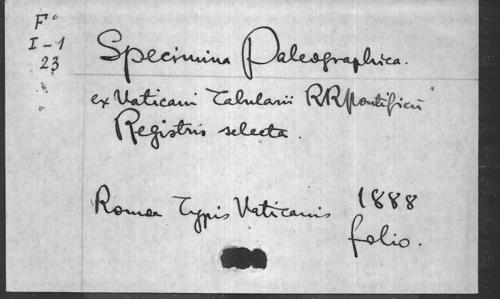 F°
I-1
23
Specimina Paleographica.
ex Vaticani Tabularii RRPontificũ
Registris selecta.
Romae Typis Vaticanis 1888
folio.